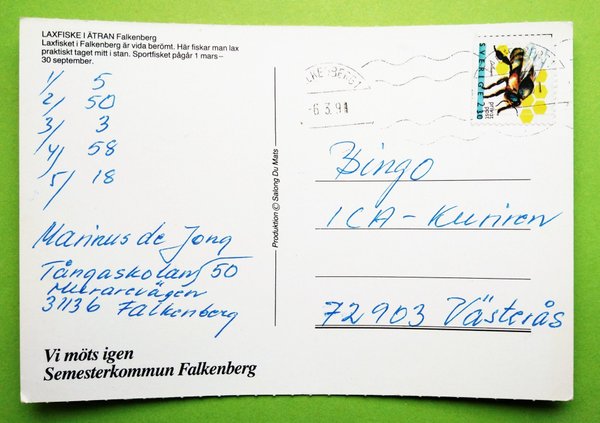 LAXFISKE I ÄTRAN Falkenberg
Laxfisket i Falkenberg är vida berömt. Här fiskar man lax
praktiskt taget mitt i stan. Sportfisket pågår 1 mars–
30 september.
1/ 5
2/ 50
3/ 3
4/ 58
5/ 18
Marinus de Jong
Tångaskolan 50
Murarevägen
31136 Falkenberg
Vi möts igen
Semesterkommun Falkenberg
Produktion © Salong Du Mats
-6.3.94
SVERIGE 2.30
privat
post
Bingo
ICA-Kuriren
72903 Västerås